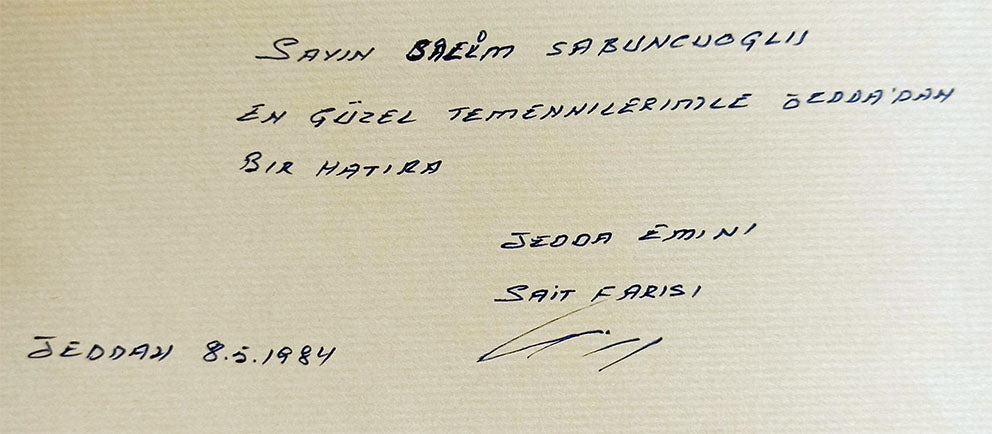 SAYIN SABUNCUOGLU
EN GÜZEL TEMENNILERIMLE JEDDA'DAN
BIR HATIRA
JEDDA EMINI
SAIT FARISI
JEDDAH 8.5.1984